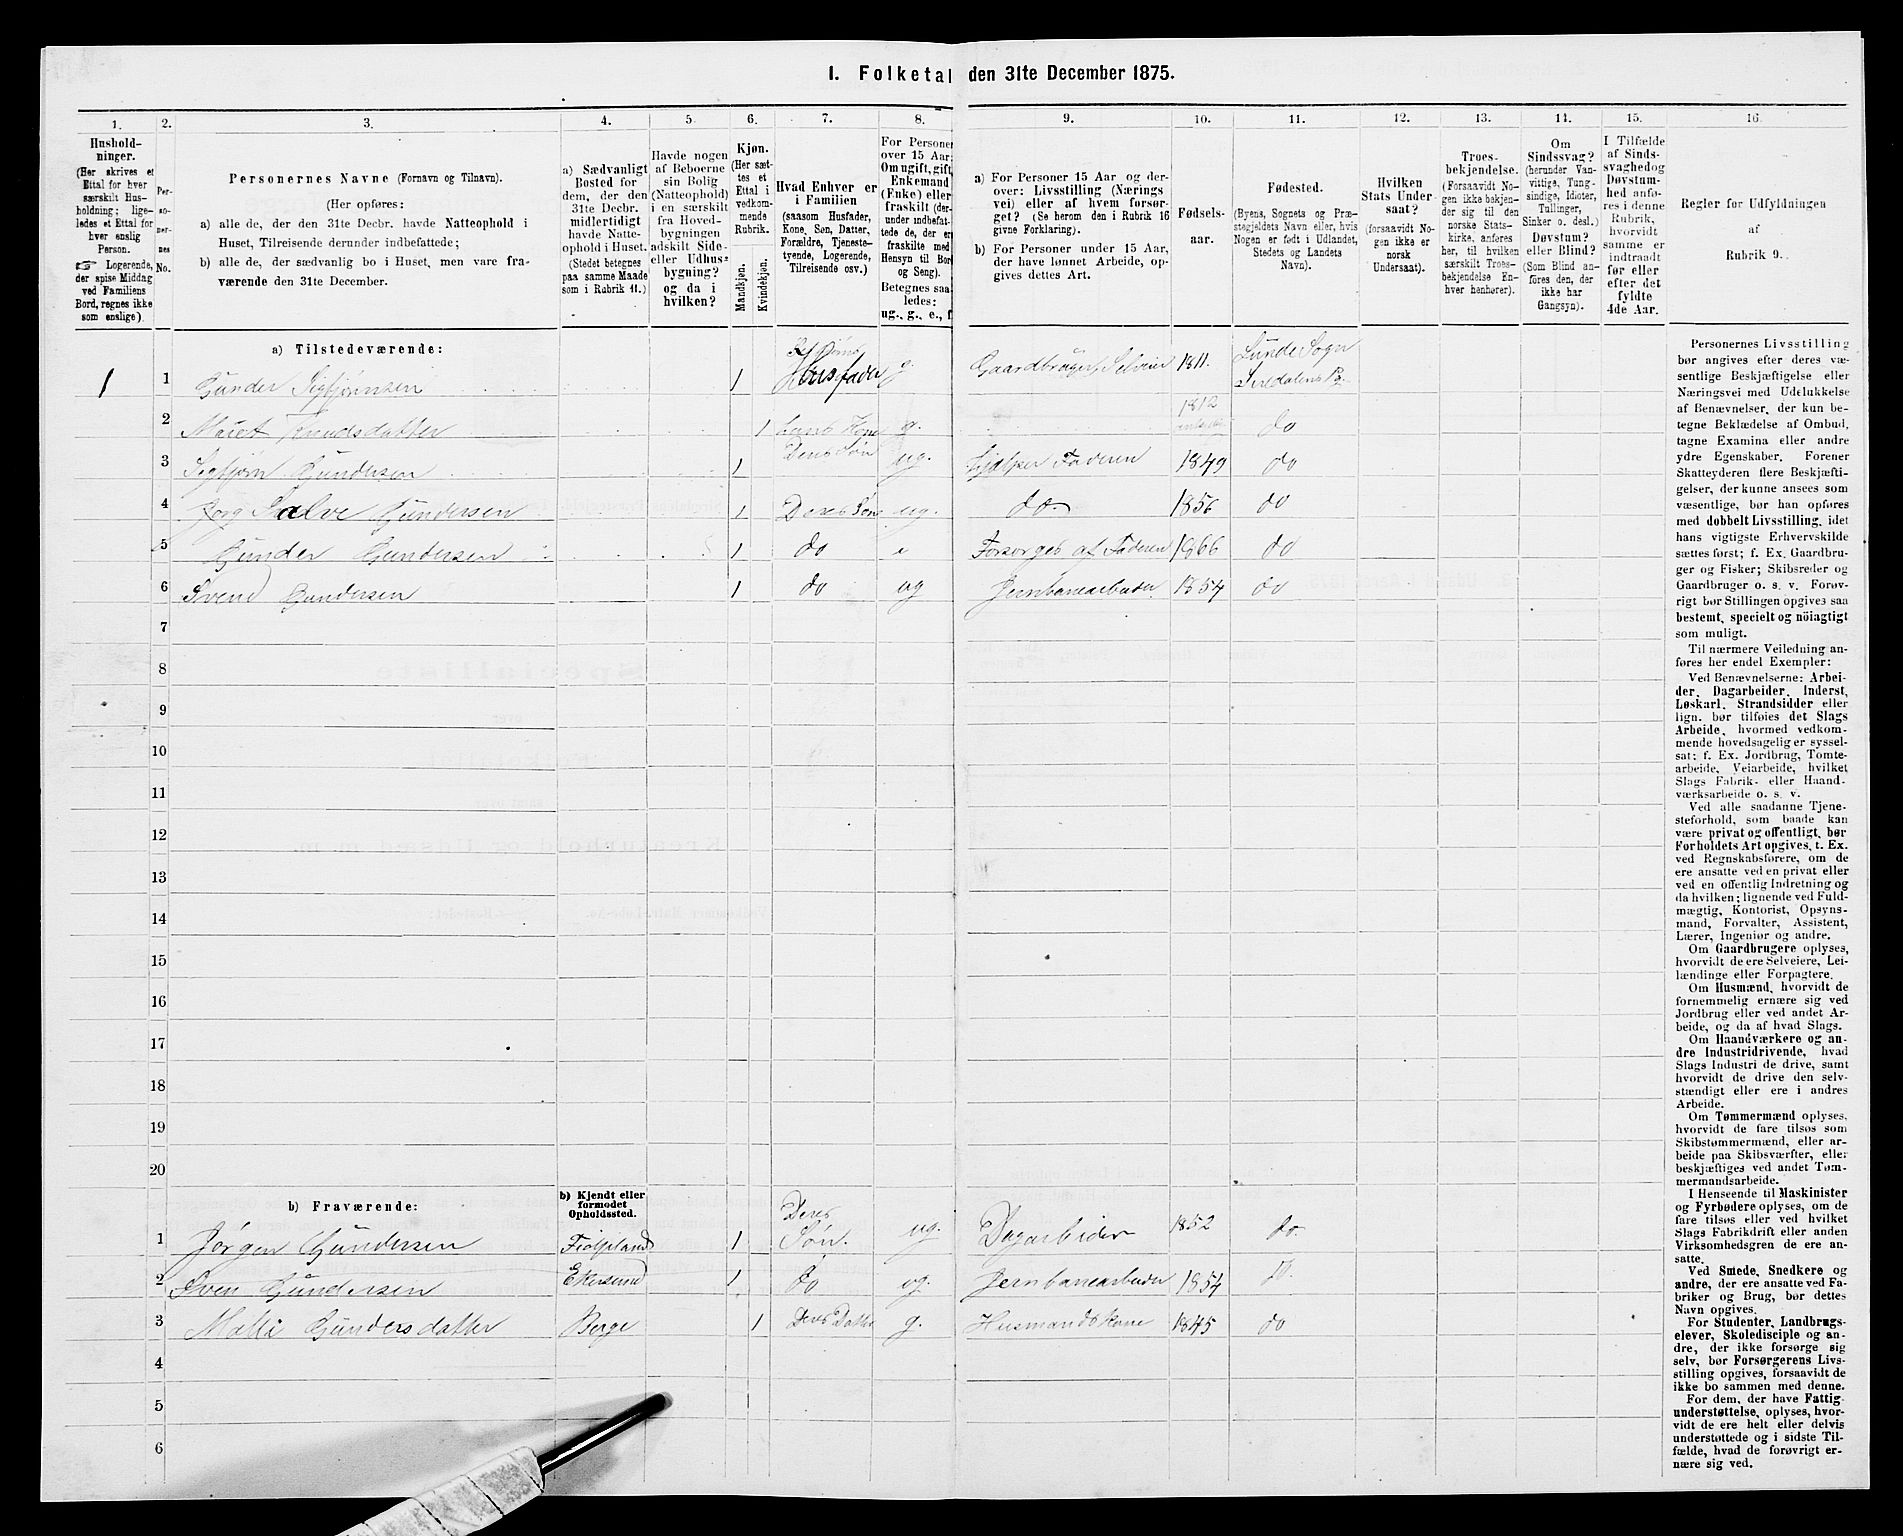 I. Folketal den 31te December 1875.
1.
Hushold-
ninger.
(Her skrives et
Ettal for hver
særskilt Hus-
holdning; lige-
ledes et Ettal for
hver enslig
Person.
☞ Logerende,
der spise Middag
ved Familiens
Bord, regnes ikke
som enslige).
2.
Per-
so-
ner-
nes
No.
3.
Personernes Navne (Fornavn og Tilnavn).
(Her opføres:
a) alle de, der den 31te Decbr. havde Natteophold i
Huset, Tilreisende derunder indbefattede;
b) alle de, der sædvanlig bo i Huset, men vare fra-
værende den 31te December.
4.
a) Sædvanligt
Bosted for
dem, der den
31te Decbr.
midlertidigt
havde Natte-
ophold i Huset.
(Stedet betegnes
paa samme Maade
som i Rubrik 11.)
5.
Havde nogen
af Beboerne
sin Bolig
(Natteophold)
i en særskilt
fra Hoved-
bygningen
adskilt Side-
eller Udhus-
bygning?
og da i
hvilken?
6.
Kjøn.
(Her sæt-
tes et
Ettal i
vedkom-
mende
Rubrik.
Mandkjøn.
Kvindekjøn.
7.
Hvad Enhver er
i Familien
(saasom Husfader,
Kone, Søn, Datter,
Forældre, Tjeneste-
tyende, Logerende,
Tilreisende osv.)
8.
For Personer
over 15 Aar:
Om ugift, gift,
Enkemand
(Enke) eller
fraskilt (der-
under indbefat-
tede de, der er
fraskilte med
Hensyn til Bord
og Seng).
Betegnes saa-
ledes:
ug., g., e., f
9.
a) For Personer 15 Aar og der-
over: Livsstilling (Nærings
vei) eller af hvem forsør-
get? (Se herom den i Rubrik 16
givne Forklaring).
b) For Personer under 15 Aar,
der have lønnet Arbeide, op-
gives dettes Art.
10.
Fødsels-
aar.
11.
Fødested.
(Byens, Sognets og Præ-
stegjeldets Navn eller, hvis
Nogen er født i Udlandet,
Stedets og Landets
Navn).
12.
Hvilken
Stats Under-
saat?
(forsaavidt No-
gen ikke er
norsk
Undersaat).
13.
Troes-
bekjendelse.
(Forsaavidt No-
gen ikke bekjen-
der sig til den
norske Stats-
kirke, anføres
her, til hvilken
særskilt Troes-
bekjendelse En-
hver henhører).
14.
Om
Sindssvag?
(herunder Van-
vittige, Tung-
sindige, Idioter,
Tullinger,
Sinker o. desl.)
Døvstum?
eller Blind?
(Som Blind an-
føres den, der
ikke har
Gangsyn).
15.
I Tilfælde
af Sinds-
svaghed og
Døvstum-
hed anfø-
res i denne
Rubrik,
hvorvidt
samme er
indtraadt
før eller
efter det
fyldte
4de Aar.
16.
Regler før Udfyldningen
af
Rubrik 9.
a) Tilstedeværende:
1 1 Gunder Sigbjørnsen 1 Husfader g. Gaardbruger, Selveier 1811. Lunde Sogn
Sirdalens Pg.
2 Maret Knudsdatter 1 hans Kone g. 1812 do
3 Sigbjørn Gundersen 1 Deres Søn ug. hjælper Faderen 1849 do
4 Salve Gundersen 1 Deres Søn ug. do. 1856 do
5 Gunder Gundersen 1 do Forsørges af Faderen 1866 do
6 Svend Gundersen 1 do ug Jernbanearbeider 1854 do
7
8
9
10
11
12
13
14
15
16
17
18
19
20
b) Fraværende:
b) Kjendt eller
formodet
Opholdssted.
1 Jørgen Gundersen 1 Deres Søn. ug. Dagarbeider 1852 do.
2 Sven Gundersen Ekersund 1 do ug. Jernbanearbeider 1854 do.
3 Gundersdatter Berge 1 Deres Datter g. Husmandskone 1845 do
4
5
6
Personernes Livsstilling
bør angives efter deres væ-
sentlige Beskjæftigelse eller
Næringsvei med Udelukkelse
af Benævnelser, der kun be-
tegne Beklædelse af Ombud,
tagne Examina eller andre
ydre Egenskaber. Forener
Skatteyderen flere Beskjæfti-
gelser, der kunne ansees som
væsentlige, bør han opføres
med dobbelt Livsstilling, idet
hans vigtigste Erhvervskilde
sættes først; f. Ex. Gaardbru-
ger og Fisker; Skibsreder og
Gaardbruger o. s. v. Forøv-
rigt bør Stillingen opgives saa
bestemt, specielt og nöiagtigt
som muligt.
Til nærmere Veiledning an-
føres her endel Exempler:
Ved Benævnelserne: Arbei-
der, Dagarbeider, Inderst,
Løskarl, Strandsidder eller
lign. bør tilføies det Slags
Arbeide, hvormed vedkom-
mende hovedsagelig er syssel-
sat; f. Ex. Jordbrug, Tomte-
arbeide, Veiarbeide, hvilket
Slags Fabrik- eller Haand-
værksarbeide o. s. v.
Ved alle saadanne Tjene-
steforhold, som baade kan
være privat og offentligt, bør
Forholdets Art opgives, t. Ex.
ved Regnskabsførere, om de
ere ansatte ved en privat eller
ved en offentlig Indretning og
da hvilken; lignende ved Fuld-
mægtig, Kontorist, Opsyns-
mand, Forvalter, Assistent,
Lærer, Ingeniør og andre.
Om Gaardbrugere oplyses,
hvorvidt de ere Selveiere, Lei-
lændinge eller Forpagtere.
Om Husmænd, hvorvidt de
fornemmelig ernære sig ved
Jordbrug eller ved andet Ar-
beide, og da af hvad Slags.
Om Haandværkere og an-
dre Industridrivende, hvad
Slags Industri de drive, samt
hvorvidt de drive den selv-
stændigt eller ere i andres
Arbeide.
Om Tømmermænd oplyses,
hvorvidt de fare tilsøs som
Skibstømmermænd, eller ar-
beide paa Skibsværfter, eller
beskjæftiges ved andet Tøm-
mermandsarbeide.
I Henseende til Maskinister
og Fyrbødere oplyses, om de
fare tilsøs eller ved hvilket
Slags Fabrikdrift eller anden
Virksomhedsgren de ere an-
satte.
Ved Smede, Snedkere og
andre, der ere ansatte ved Fa-
briker og Brug, bør dettes
Navn opgives.
For Studenter, Landbrugs-
elever, Skoledisciple og an-
dre, der ikke forsørge sig
selv, bør Forsørgerens Livs-
stilling opgives, forsaavidt de
ikke bo sammen med denne.
For dem, der have Fattig-
understøttelse, oplyses, hvor-
vidt de ere helt eller delvis
understøttede og i sidste Til-
fælde, hvad de forøvrigt er-
nære sig ved.